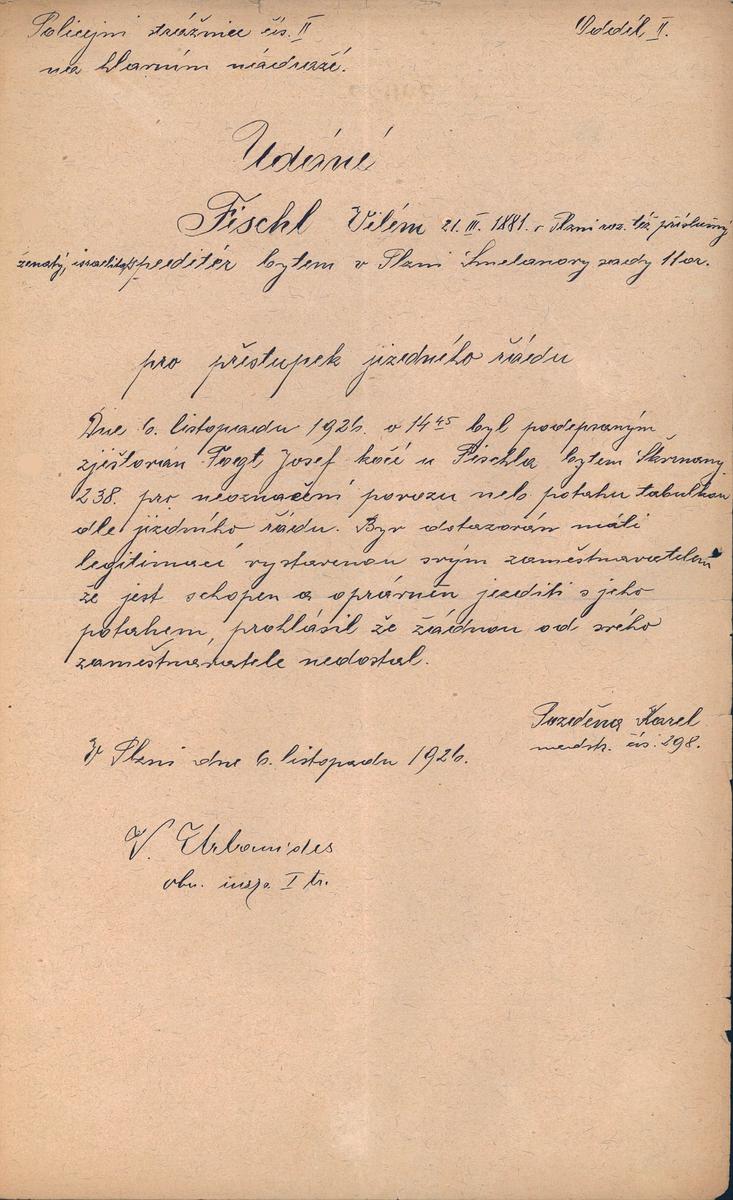 Policejní strážnice čís. II
Odděl. II.
na hlavním nádraží.
Udání
Fischl Vilém 21. III. 1881. v Plzni nar. též příslušný
ženatý, israelita, speditér bytem v Plzni Smetanovy sady 11 or.
pro přestupek jízdního řádu
Dne 6. listopadu 1926. o 14 45 byl podepsaným
zjištován Voegt Josef kočí u Fischla bytem Škvrňany
238. pro neoznačení povozu neb potahu tabulkou
dle jízdního řádu. Byv dotazován máli
legitimaci vystavenou svým zaměstnavatelem
že jest schopen a oprávněn jezditi s jeho
potahem, prohlásil že žádnou od svého
zaměstnavatele nedostal.
Pazděra Karel
čís. 298.
V Plzni dne 6. listopadu 1926.
V. Urbanides
obv. insp. I tr.